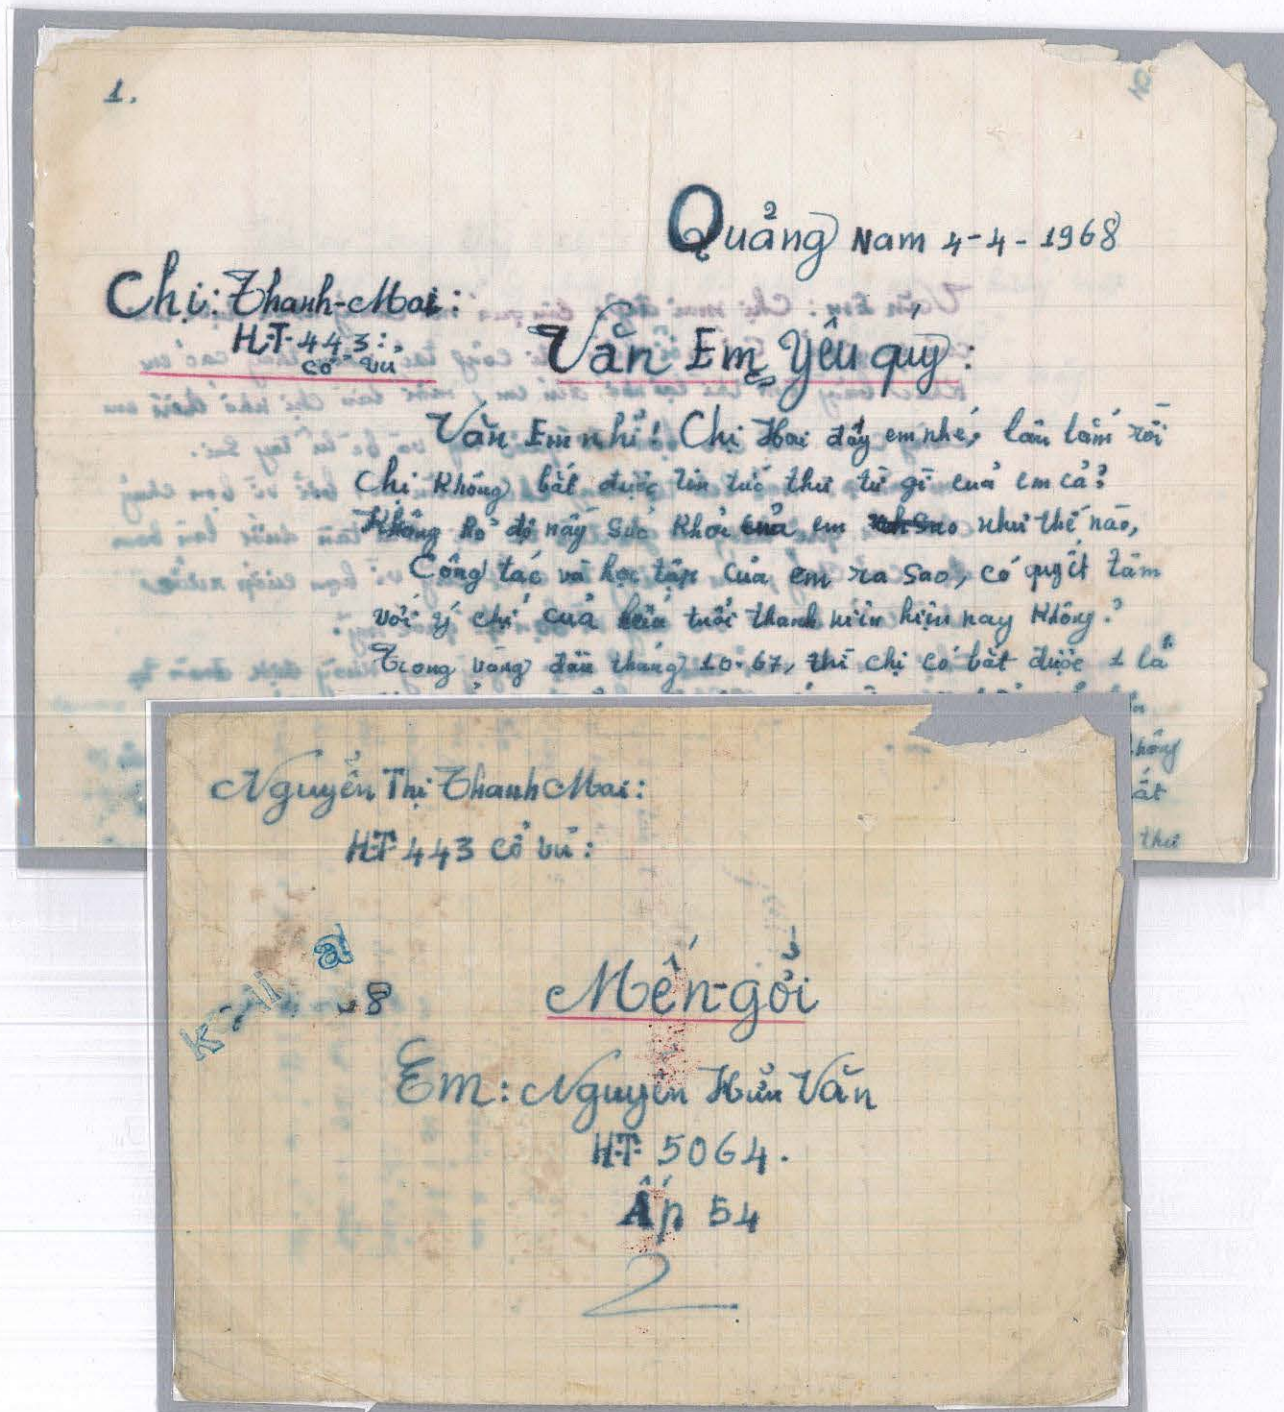 1.
Quảng Nam 4-4-1968
Chị: Thanh-Mai:
H.T.443:
cổ vủ
Văn Em yêu quý:
Văn Em nhỉ! Chị Hai đây em nhé, lâu lắm rồi
Chị không bắt được tin tức thư từ gì của em cả?
Không hỏ độ nầy sức khỏe của em như thế nào,
Công tác và học tập của em ra sao, có quyết tâm
với ý chí của tuổi thanh niên hiện nay không?
Trong vòng đầu tháng 10-67, thì chị có bắt được 1 lá
không
ất
thư
Nguyễn Thị Thanh Mai:
H.T 443 Cổ vủ:
Mến-gởi
Em: Nguyễn Hửu Văn
H.T. 5064.
Ấp 54
2
8
a